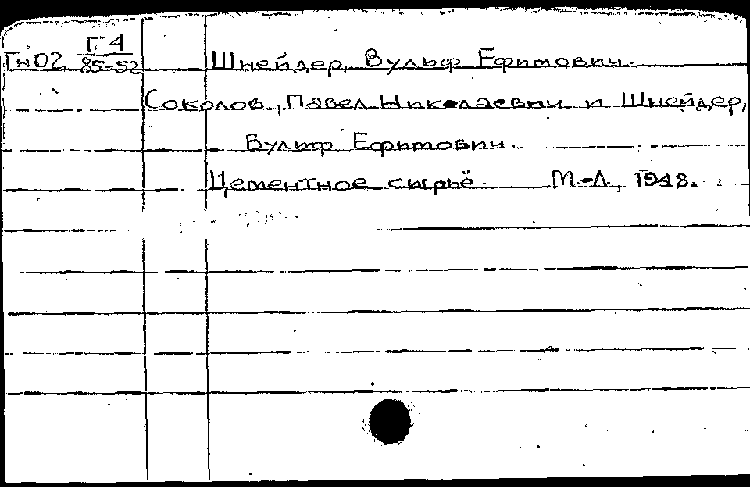 Г4
Гю02 85-52 Шнейдер, Вульф Ефимович.
Соколов, Павел Николаевич и Шнейдер,
Вульф Ефимович.
Цементное сырьё М-Л, 1948.